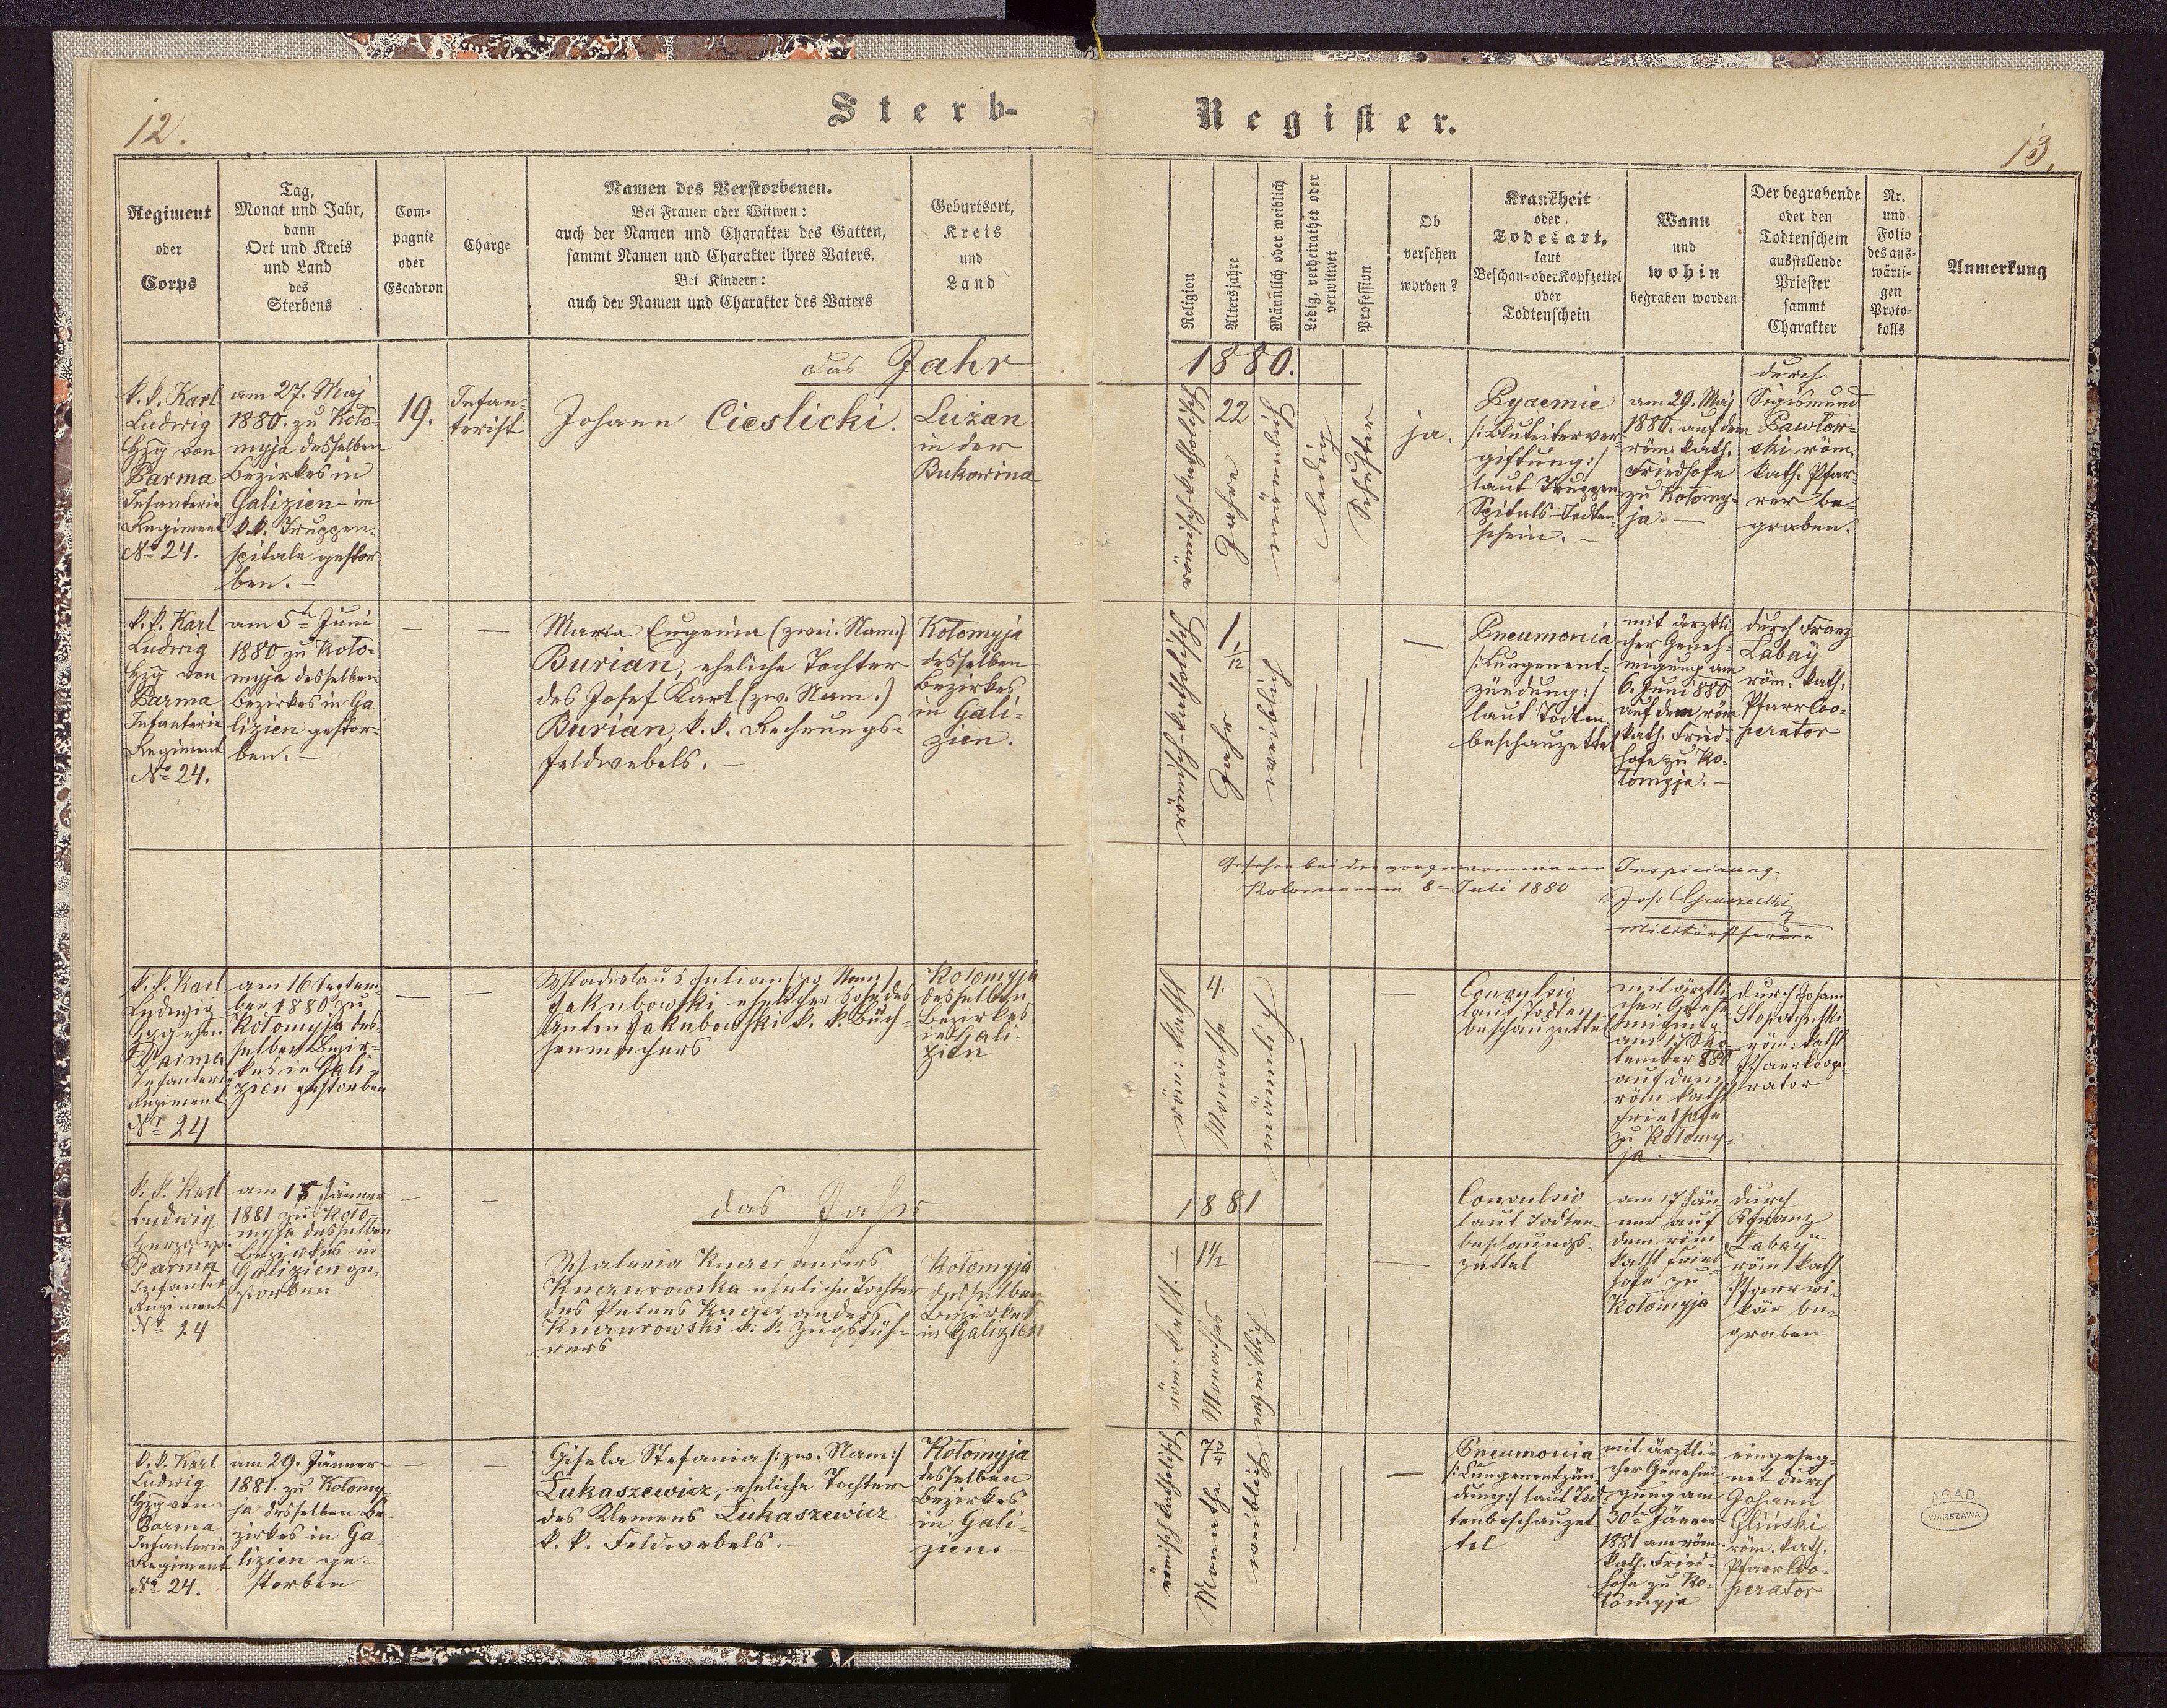 12.
Sterb-
Register.
13.
Regiment
oder
Corps
Tag,
Monat und Jahr,
dann
Ort und Kreis
und Land
des
Sterbens
Com-
pagnie
oder
Escadron
Charge
Namen des Verstorbenen.
Bei Frauen oder Witwen:
auch der Namen und Charakter des Gatten,
sammt Namen und Charakter ihres Vaters.
Bei Kindern:
auch der Namen und Charakter des Vaters
Geburtsort,
Kreis
und
Land
Religion
Altersjahre
Männlich oder weiblich
Ledig, verheirathet oder
verwitwet
Profession
Ob
versehen
worden?
Krankheit
oder
Todesart,
laut
Beschau- oder Kopfzettel
oder
Todtenschein
Wann
und
wohin
begraben worden
Der begrabende
oder den
Todtenschein
ausstellende
Priester
sammt
Charakter
Nr.
und
Folio
des aus-
wärti-
gen
Proto-
kolls
Anmerkung
das Jahr
1880.
k. k. Karl
Ludwig
Hzg von
Parma
Infanterie
Regiment
No 24.
am 27. Maj
1880. zu Koło-
myja desselben
Bezirkes in
Galizien - im
k.k. Truppen-
spitale gestor-
ben. -
19.
Infan-
terist
Johann Cieslicki.
Lużan
in der
Bukowina
römisch-katholisch
22
Jahre
männlich
ledig
ja.
Pyaemie
/:Bluteiterver-
giftung:/
laut Truppen
Spitals-Todten-
schein. -
am 29. Maj
1880. auf dem
röm. kath.
Friedhofe
zu Kołomy-
ja. -
durch
Sigismund
Pawłow-
ski röm.
kath. Pfar-
rer be-
graben.
k. k. Karl
Ludwig
Hzg von
Parma
Infanterie
Regiment
No 24.
am 5ten Juni
1880 zu Koło-
myja desselben
Bezirkes in Ga
lizien gestor-
ben. -
Maria Eugenia (zwei. Nam:)
Burian, eheliche Tochter
des Josef Karl (zw. Nam.)
Burian, k. k. Rechnungs-
feldwebels. -
Kołomyja
desselben
Bezirkes
in Gali-
zien.
römisch-katholisch
1 1/12
Jahre
weiblich
Pneumonia
/:Lungenent-
zündung:/
laut Todten
beschauzettel
mit ärztli
cher Geneh-
migung am
6. Juni 880
auf dem röm
kath. Fried-
hofe zu Ko-
łomyja. -
durch Franz
Łabaÿ
röm. kath.
Pfarr Coo-
perator
Gesehen bei der vorgenommenen Inspicirung.
Kolomea am 8 Juli 1880
k. k. Karl
Ludwig
Hzg von
Parma
Infanterie
Regiment
Nr 24
am 16 Septem-
ber 1880 zu
Kołomyja des-
selben Bezir-
kes in Gali-
zien gestorben
Wladislaus Julian (zw Nam)
Jakubowski ehelicher Sohn des
Anton Jakubowski k. k. Büch-
senmachers
Kołomyja
desselben
Bezirkes
in Gali-
zien
röm: kath
4.
Monathe
männlich
Convulsio
laut Todten
beschauzettel
mit ärztli
cher Geneh
migung
am 17 Sep-
tember 880
auf dem
röm kath
Friedhofe
zu Kołomy-
ja. -
durch Johann
röm: kath
Pfarrkoope-
rator
das Jahr
1881
k. k. Karl
Ludwig
Herzg von
Parma
Infanter
Regiment
Nr 24
am 15 Jänner
1881 zu Koło-
myja desselben
Bezirkes in
Galizien ge-
storben
Waleria Knezer anders
Knezurowska eheliche Tochter
des Peters Knezer anders
Knezurowski k. k. Zugsfüh-
rers
Kołomyja
desselben
Bezirkes
in Galizien
röm: kath:
1½
Monathe
weiblich
Convulsio
laut Todten-
beschauungs-
zettel
am 17 Jän-
ner auf
dem röm
kath Fried
hofe zu
Kołomyja
durch
Franz
Łabay
röm kath
Pfarrvi-
kär be-
graben
k. k. Karl
Ludwig
Hzg von
Parma
Infanterie
Regiment
No 24.
am 29. Jänner
1881. zu Kołomy-
ja desselben Be-
zirkes in Ga-
lizien ge-
storben
Gisela Stefania /:zw. Nam:/
Łukaszewicz, eheliche Tochter
des Klemens Łukaszewicz
k. k. Feldwebels. -
Kołomyja
desselben
Bezirkes
in Gali-
zien. -
römisch-katholisch
Monathe
weiblich
Pneumonia
/:Lungenentzün-
dung:/ laut Tod
tenbeschauzet-
tel
mit ärztli-
cher Genehmi
gung am
30ten Jänner
1881 am röm.
kath. Fried-
hofe zu Ko-
łomyja
eingeseg-
net durch
Johann
Gliński
röm. kath.
Pfarr Coo-
perator
AGAD
WARSZAWA